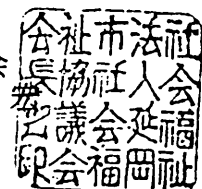 社会福祉
法人延岡
市社会福
祉協議会
会長之印